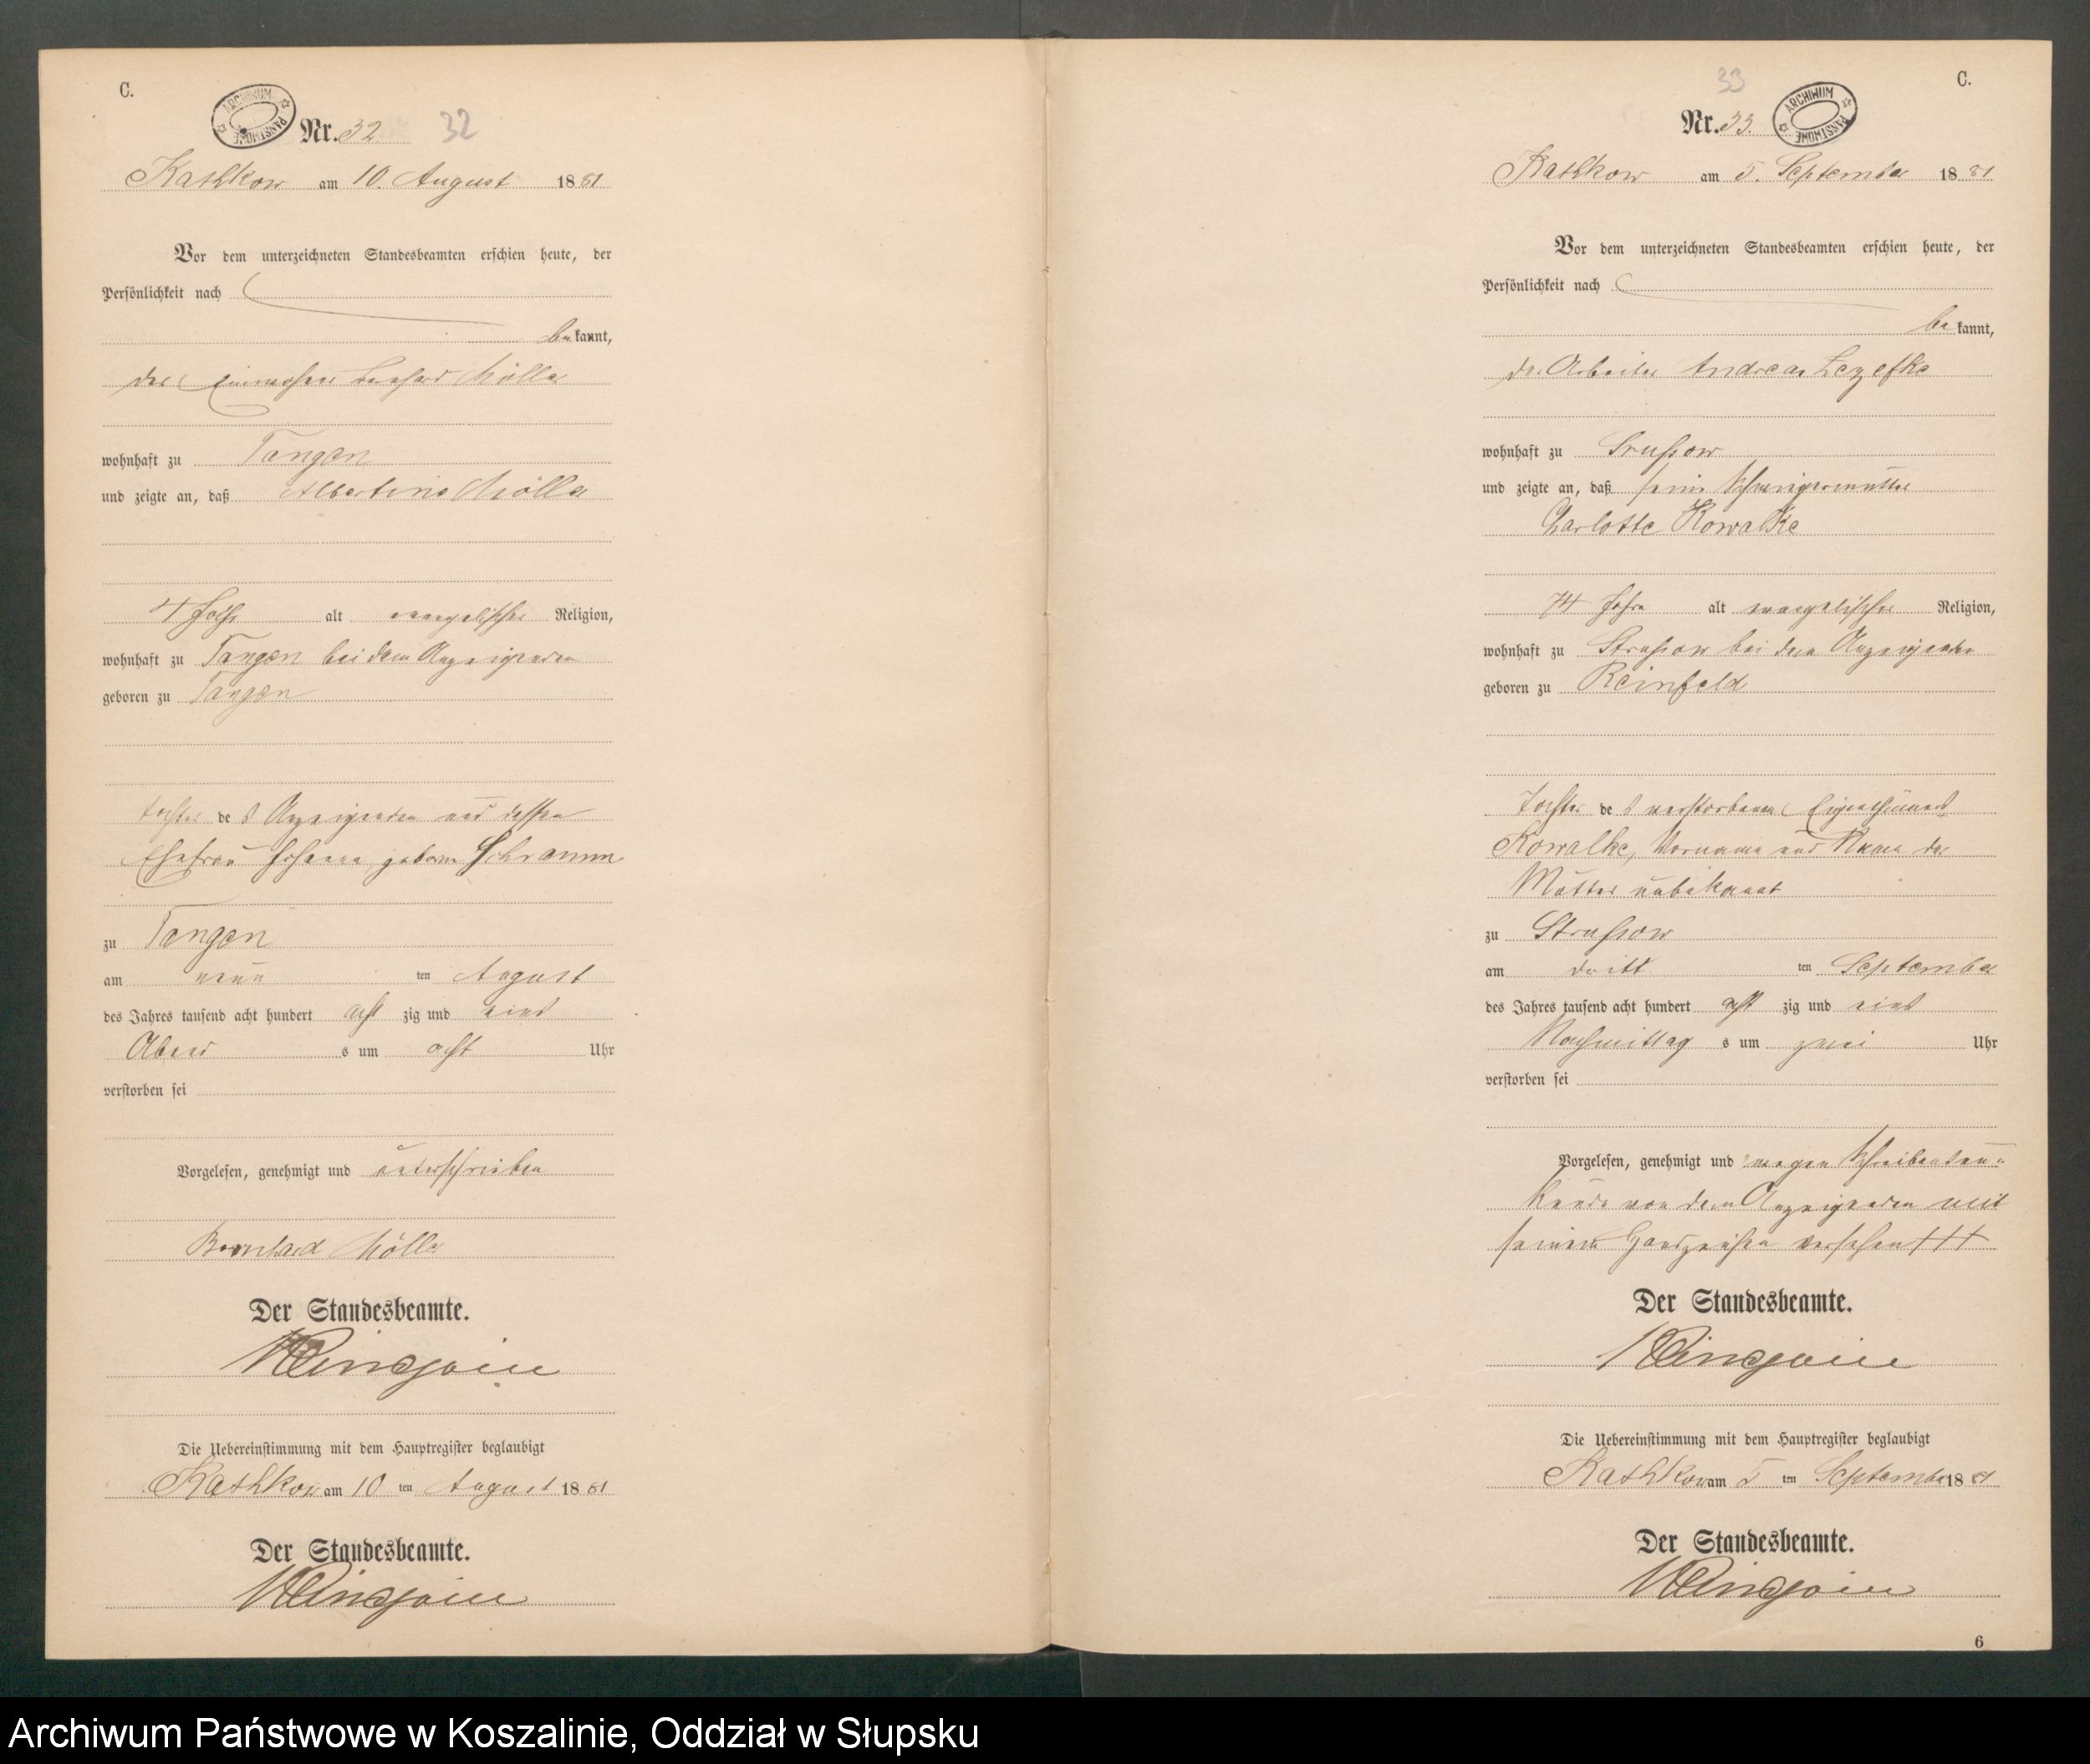 C.
ARCHIWUM PAŃSTWOWE
Nr. 32 32
Kathkow am 10. August 1881
Vor dem unterzeichneten Standesbeamten erschien heute, der
Persönlichkeit nach
bekannt,
der Einwohner Möller
wohnhaft zu Tangen
und zeigte an, daß Albertine Möller
4 Jahre alt evangelischer Religion,
wohnhaft zu Tangen bei dem Anzeigenden
geboren zu Tangen
Tochter des Anzeigenden und dessen
Ehefrau Johanna geborene Schramm
zu Tangen
am neun ten August
des Jahres tausend acht hundert acht zig und eins
Abend s um acht Uhr
verstorben sei
Vorgelesen, genehmigt und unterschrieben
Bernhard Möller
Der Standesbeamte.
Die Uebereinstimmung mit dem Hauptregister beglaubigt
Kathkow am 10 ten August 1881
Der Standesbeamte.
33 C.
Nr. 33.
ARCHIWUM PAŃSTWOWE
Kathkow am 5. September 1881
Vor dem unterzeichneten Standesbeamten erschien heute, der
Persönlichkeit nach
bekannt,
der Arbeiter Andreas Lezefke
wohnhaft zu Strussow
und zeigte an, daß seine Schwiegermutter
Charlotte Kowalke
74 Jahre alt evangelischer Religion,
wohnhaft zu Strussow bei dem Anzeigenden
geboren zu Reinfeld
Tochter des verstorbenen Eigenthümers
Kowalke, Vorname und Name der
Mutter unbekannt
zu Strussow
am dritt ten September
des Jahres tausend acht hundert acht zig und eins
Nachmittag s um zwei Uhr
verstorben sei
Vorgelesen, genehmigt und wegen Schreibensun-
kunde von dem Anzeigenden mit
seinem Handzeichen versehen +++
Der Standesbeamte.
Die Uebereinstimmung mit dem Hauptregister beglaubigt
Kathkow am 5 ten September 1881
Der Standesbeamte.
6
Archiwum Państwowe w Koszalinie, Oddział w Słupsku